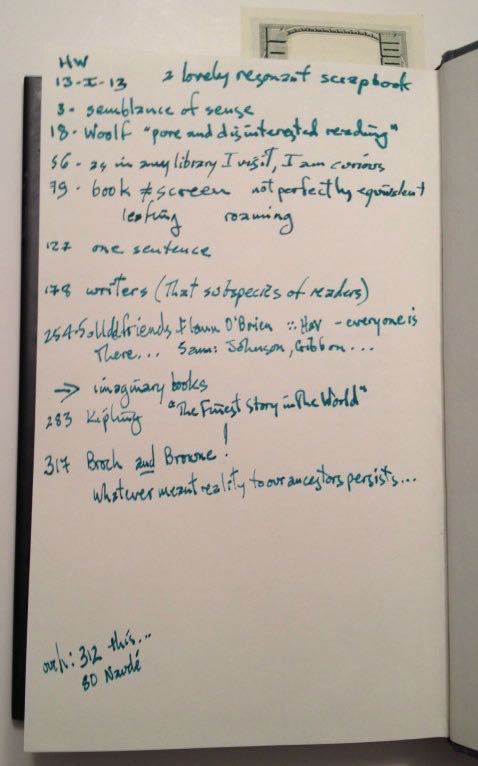 HW
13-I-13 a lovely resonant scrapbook
3 - semblance of sense
18 - Woolf "pure and disinterested reading"
56 - as in any library I visit, I am curious
79 - book ≠ screen not perfectly equivalent
leafing roaming
127 one sentence
178 writers (that subspecies of readers)
254-5 old friends Flann O'Brien :: Hav - everyone is
there... Sam: Johnson, Gibbon...
→ imaginary books
283 Kipling "The Finest Story in The World"
!
317 Broch and Browne!
whatever meant reality to our ancestors persists...
ouch: 312 this...
80 Naudé